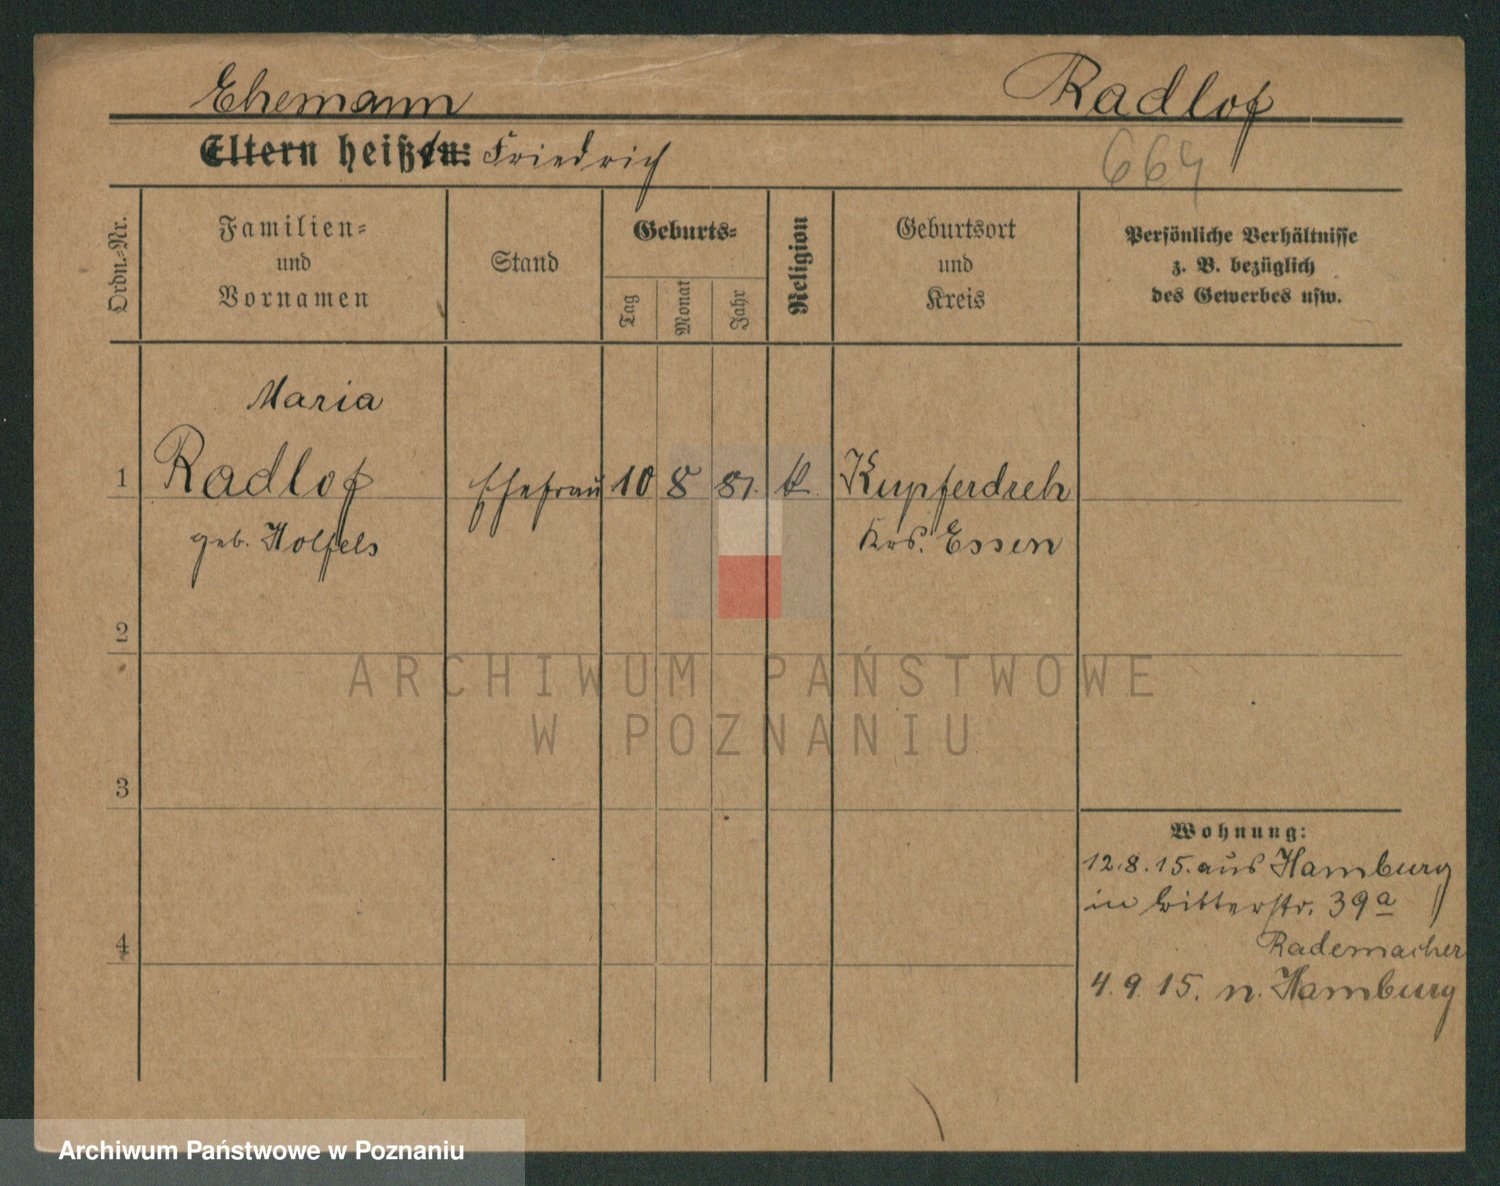 Ehemann Radlof
Eltern heißen: Friedrich
664
Ordn.-Nr.
Familien-
und
Vornamen
Stand
Geburts-
Tag
Monat
Jahr
Religion
Geburtsort
und
Kreis
Persönliche Verhältnisse
z. B. bezüglich
des Gewerbes usw.
Maria
1 Radlof Ehefrau 10 8 81. k. Kupferdreh
geb. Holfels Krs. Essen
2
3
4
Wohnung:
12.8.15. aus Hamburg
in Ritterstr. 39a
Rademacher
4.9.15. n. Hamburg
ARCHIWUM PAŃSTWOWE
W POZNANIU
Archiwum Państwowe w Poznaniu